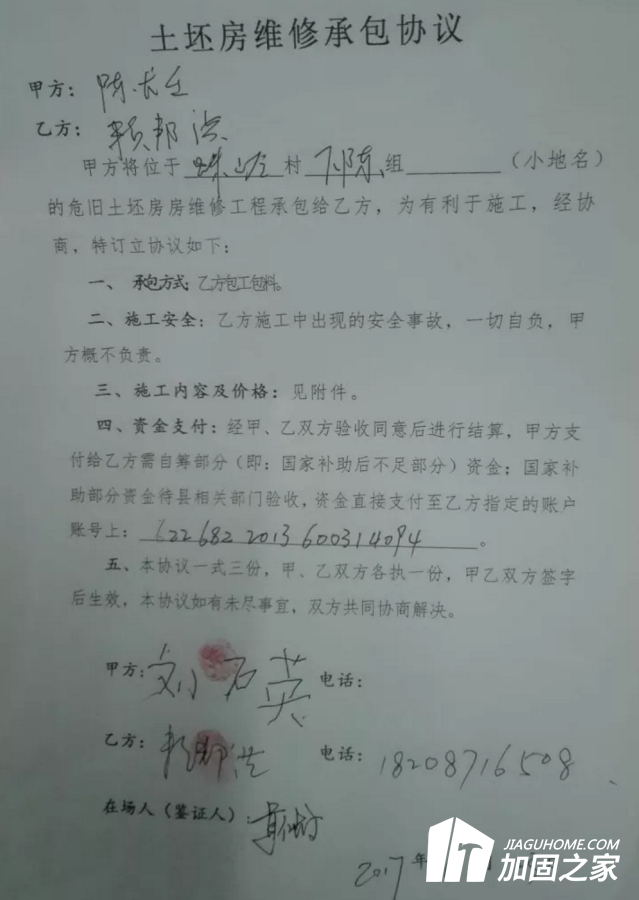 土坯房维修承包协议
甲方：陈长壬
乙方：赖邦洪
甲方将位于 村 组（小地名）
的危旧土坯房房维修工程承包给乙方，为有利于施工，经协
商，特订立协议如下：
一、承包方式：乙方包工包料。
二、施工安全：乙方施工中出现的安全事故，一切自负，甲
方概不负责。
三、施工内容及价格：见附件。
四、资金支付：经甲、乙双方验收同意后进行结算，甲方支
付给乙方需自筹部分（即：国家补助后不足部分）资金；国家补
助部分资金待县相关部门验收，资金直接支付至乙方指定的账户
账号上：6226822013600314094。
五、本协议一式三份，甲、乙双方各执一份，甲乙双方签字
后生效，本协议如有未尽事宜，双方共同协商解决。
甲方：刘石英 电话：
乙方：赖邦洪 电话：18208716508
在场人（签证人）：
2017年
JIAGUHOME.COM
加固之家